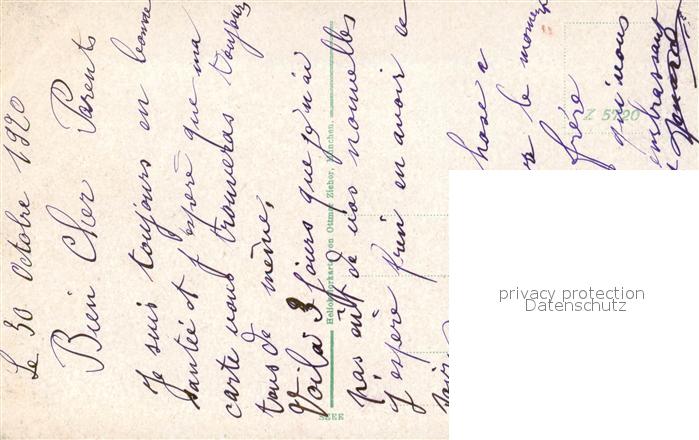 Le 30 Octobre 1920
Bien Cher Parents
Je suis toujours en bonne
santée et j'espère que ma
carte vous trouveras toujours
tous de même,
Voila 3 jours que je n'ai
pas eut de vos nouvelles
j'espère bien en avoir ce
soir
chose a
le moment
frère
qui vous
embrassant
Heliocolorkarte von Ottmar Zieher, München.
SZEE
Z 5720
privacy protection
Datenschutz